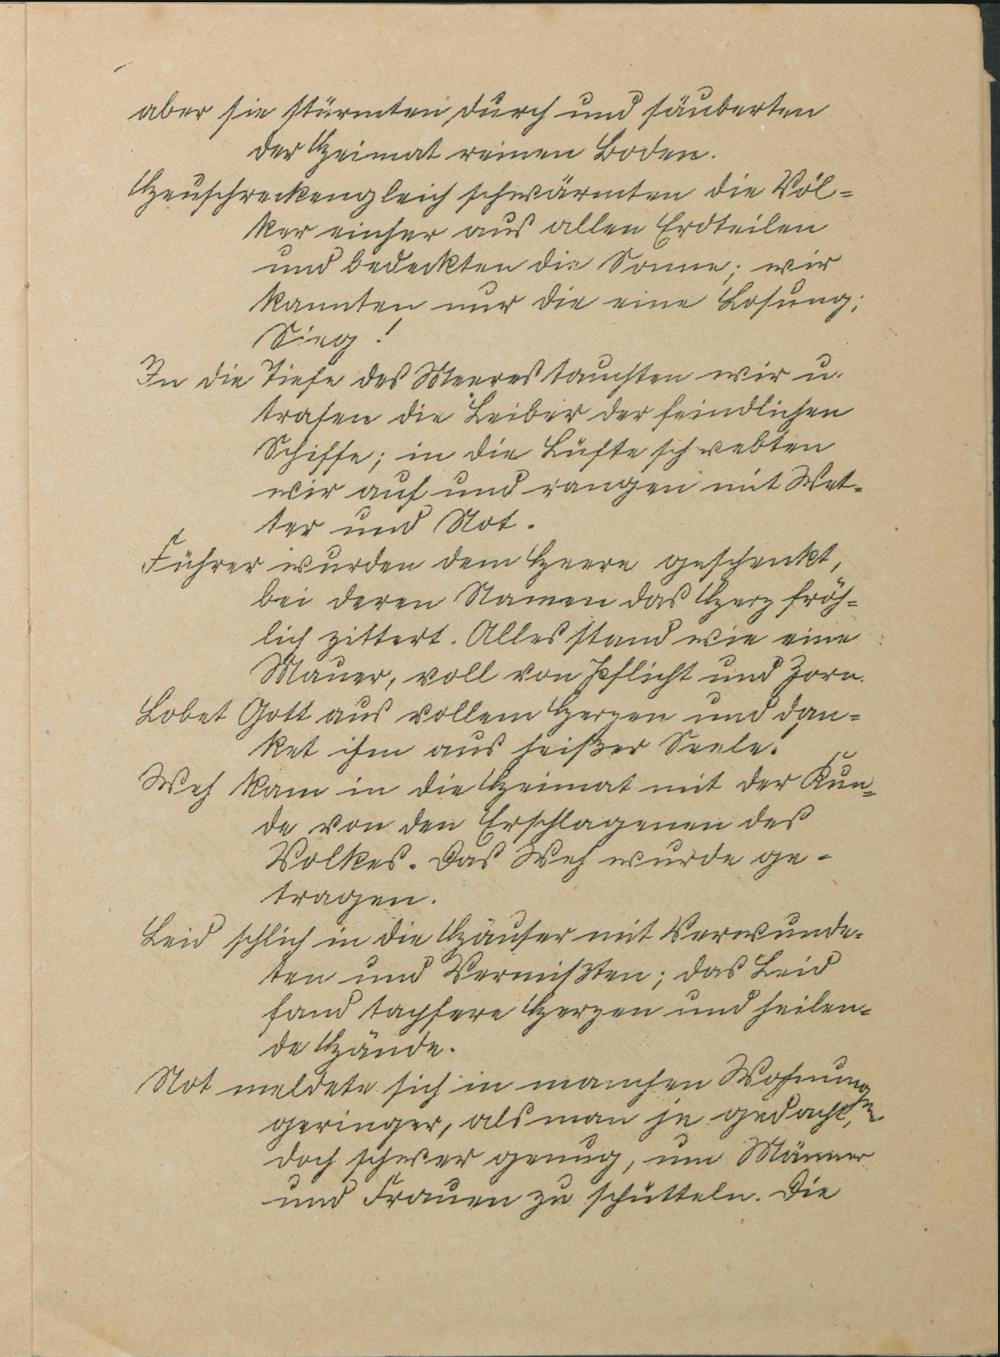 aber sie stürmten durch und säuberten
der Heimat reinen Boden.
Heuschreckengleich schwärmten die Völ-
ker einher aus allen Erdteilen
und bedeckten die Sonne; wir
kannten nur die eine Losung:
Sieg!
In die Tiefe des Meeres tauchten wir u.
trafen die Leiber der feindlichen
Schiffe; in die Lüfte schwebten
wir auf und rangen mit Wet-
ter und Not.
Führer wurden dem Heere geschenkt,
bei deren Namen das Herz fröh-
lich zittert. Alles stand wie eine
Mauer, voll von Pflicht und Zorn.
Lobet Gott aus vollem Herzen und dan-
ket ihm aus heißer Seele.
Weh kam in die Heimat mit der Kun-
de von den Erschlagenen des
Volkes. Das Weh wurde ge-
tragen.
Leid schlich in die Häuser mit Verwunde-
ten und Vermißten; das Leid
fand tapfere Herzen und heilen-
de Hände.
Not meldete sich in manchen Wohnungen
geringer, als man je gedacht,
doch schwer genug, um Männer
und Frauen zu schütteln. Die